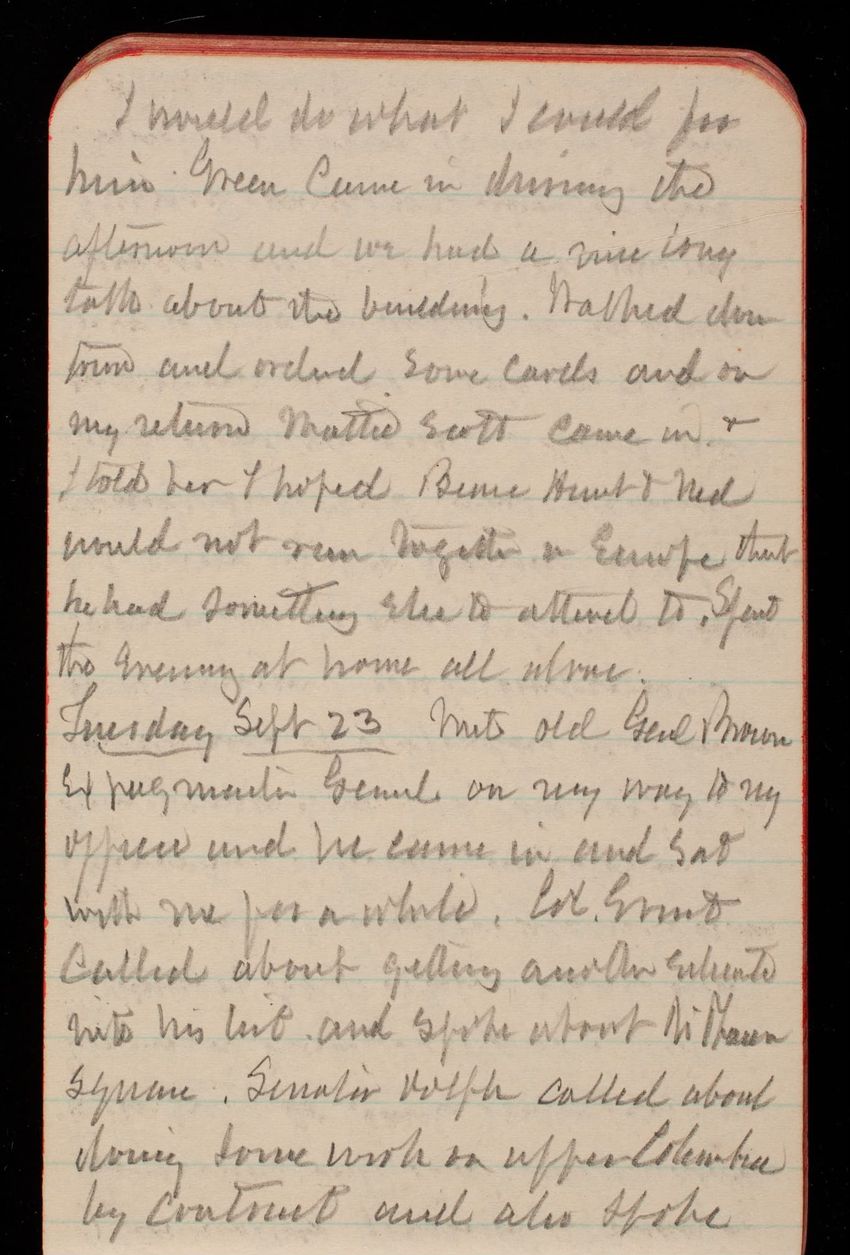 I would do what I could for
him. Green came in during the
afternoon and we had a nice long
talk about the building. Walked down
town and ordered some cards and on
my return Mattie Scott came in &
I told her I hoped Hunt & Ned
would not run together in Europe that
he had something else to attend to. Spent
the evening at home all alone.
Tuesday Sept 23 Met old Genl Brown
Ex paymaster Genrl. on my way to my
office and he came in and sat
with me for a while. Col. Ernst
called about getting another estimate
into his bill and spoke about
square. Senator Dolph called about
doing some work on upper Columbia
by contract and also spoke